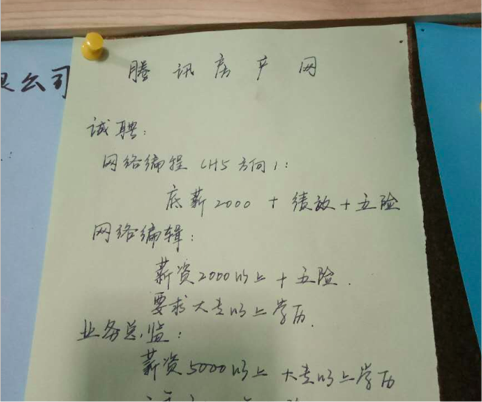 限公司
腾讯房产网
诚聘:
网络编程(H5方向):
底薪2000 + 绩效 + 五险
网络编辑:
薪资2000以上 + 五险.
要求大专以上学历.
业务总监:
薪资5000以上 大专以上学历